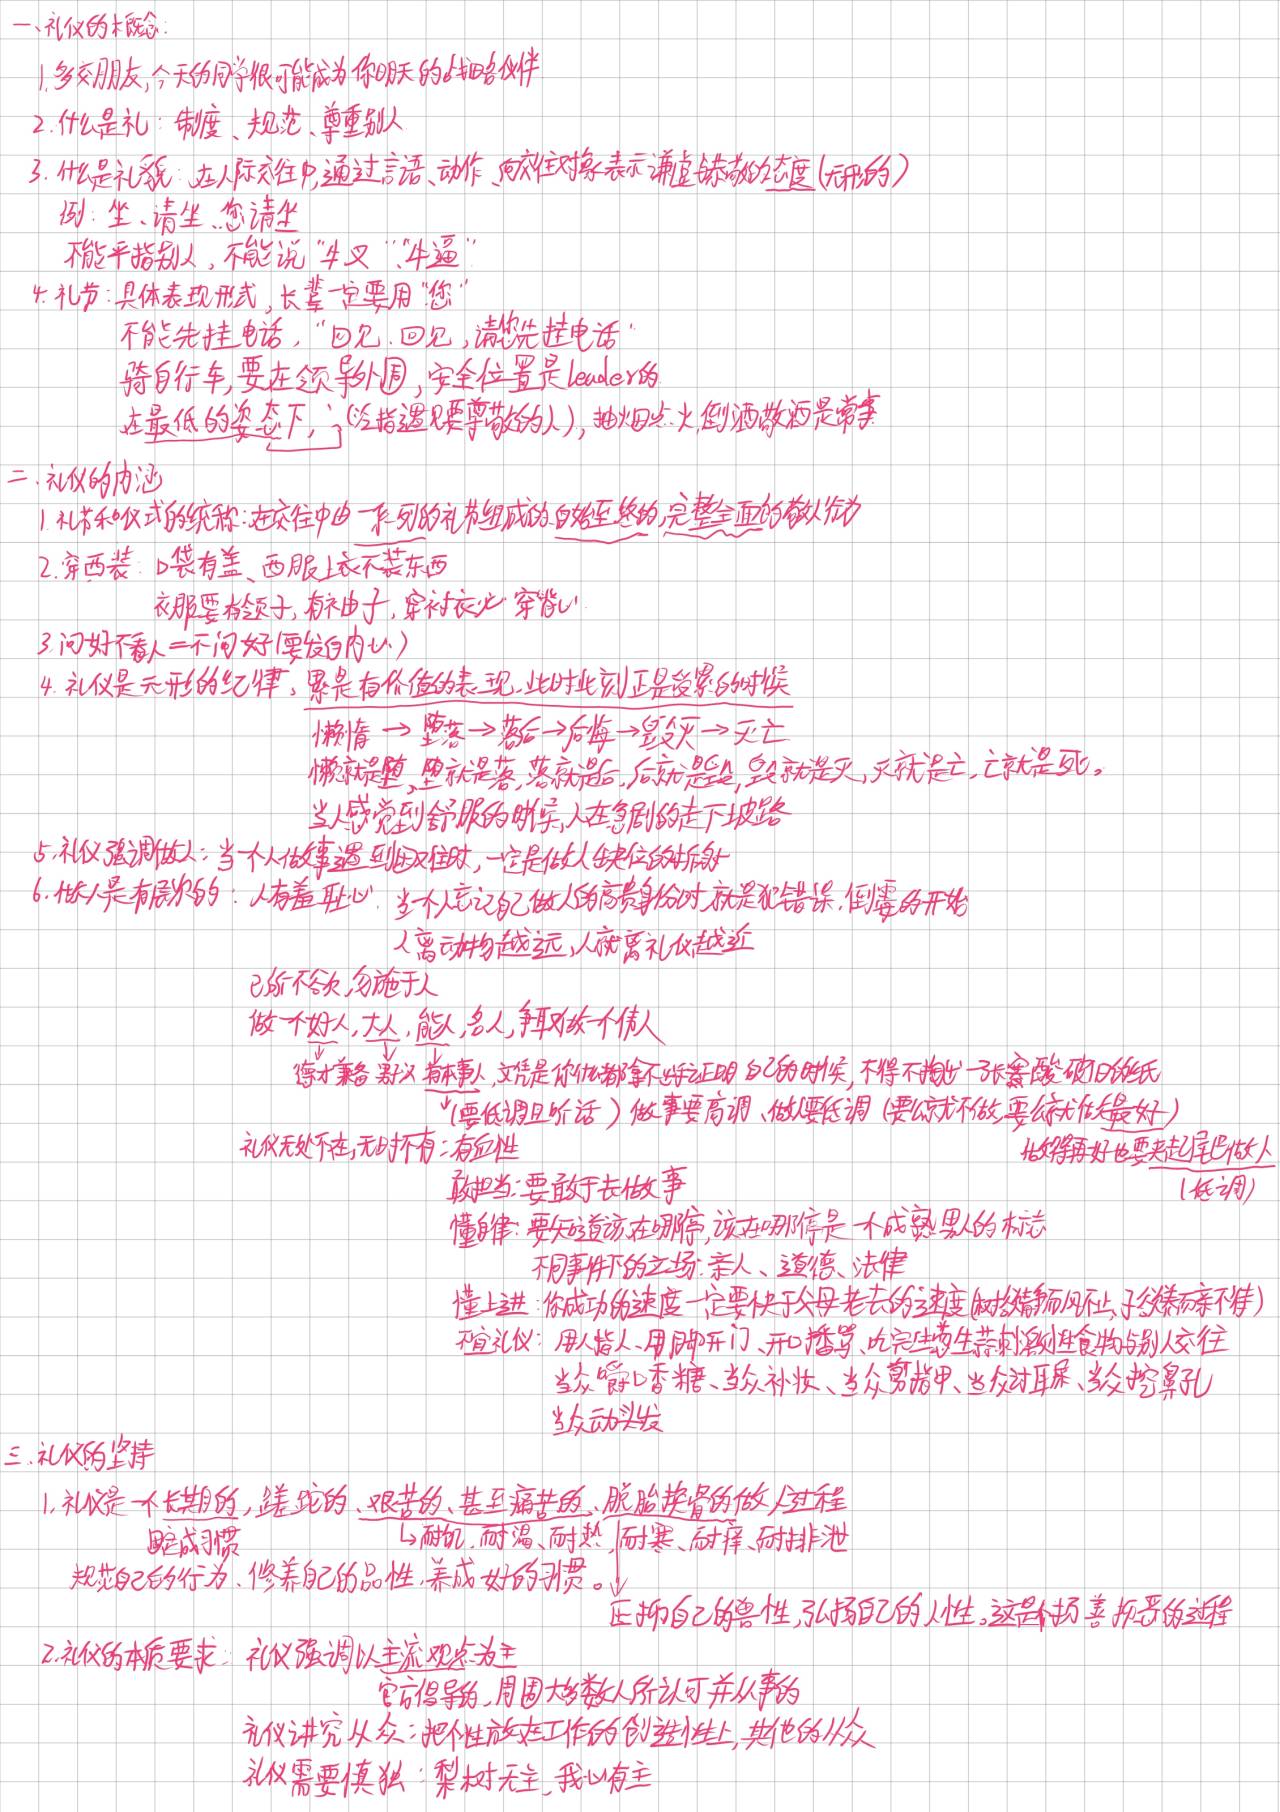 一、礼仪的概念:
1.多交朋友,今天的同学很可能成为你明天的战略伙伴
2.什么是礼:制度、规范、尊重别人
3.什么是礼貌:在人际交往中,通过言语、动作、向交往对象表示谦虚恭敬的态度(无形的)
例:坐、请坐、您请坐
不能平指别人,不能说“牛叉”“牛逼”
4.礼节:具体表现形式,长辈一定要用“您”
不能先挂电话,“回见、回见,请您先挂电话”
骑自行车,要在领导外围,安全位置是leader的
在最低的姿态下,(泛指遇见要尊敬的人),抽烟点火,倒酒敬酒是常事
二、礼仪的内涵
1.礼节和仪式的统称:在交往中由一系列的礼节组成的自始至终的,完整全面的敬人行为
2.穿西装:口袋有盖、西服上衣不装东西
衣服要有领子,有袖子,穿衬衣必穿背心
3.问好不看人=不问好(要发自内心)
4.礼仪是无形的纪律,累是有价值的表现,此时此刻正是受累的时候
懒惰→堕落→落后→后悔→毁灭→灭亡
懒就是堕,堕就是落,落就是后,后就是毁,毁就是灭,灭就是亡,亡就是死。
当人感觉到舒服的时候,人在急剧的走下坡路
5.礼仪强调做人:当一个人做事遇到困难时,一定是做人缺位的折射
6.做人是有层次的:人有羞耻心 当一个人忘记自己做人的高贵身份时,就是犯错误、倒霉的开始
人离动物越远,人就离礼仪越近
己所不欲,勿施于人
做一个好人,大人,能人,名人,争取做一个伟人
德才兼备 男义 有本事人,文凭是你什么都拿不出证明自己的时候,不得不掏出一张寒酸破旧的纸
(要低调且听话)做事要高调、做人要低调(要么就不做,要么就做最好)
礼仪无处不在,无时不有:有血性
做得再好也要夹起尾巴做人
(低调)
敢担当:要敢于去做事
懂自律:要知道该在哪停,该在哪停是一个成熟男人的标志
不同事件下的立场:亲人、道德、法律
懂上进:你成功的速度一定要快于父母老去的速度(树欲静而风不止,子欲养而亲不待)
不宜礼仪:用人指人、用脚开门、开口播骂、吃完生葱生蒜刺激性食物与别人交往
当众嚼口香糖、当众补妆、当众剪指甲、当众讨耳屎、当众挖鼻孔
当众动头发
三、礼仪的坚持
1.礼仪是一个长期的,蹉跎的、艰苦的、甚至痛苦的、脱胎换骨的做人过程
成习惯 耐饥、耐渴、耐热、耐寒、耐痒、耐排泄
规范自己的行为、修养自己的品性,养成好的习惯。
压抑自己的兽性,弘扬自己的人性。这是个扬善抑恶的过程
2.礼仪的本质要求:礼仪强调以主流观点为主
官方倡导的,周围大多数人所认可并从事的
礼仪讲究从众:把个性放在工作的创造性上,其他的从众
礼仪需要慎独:梨树无主,我心有主